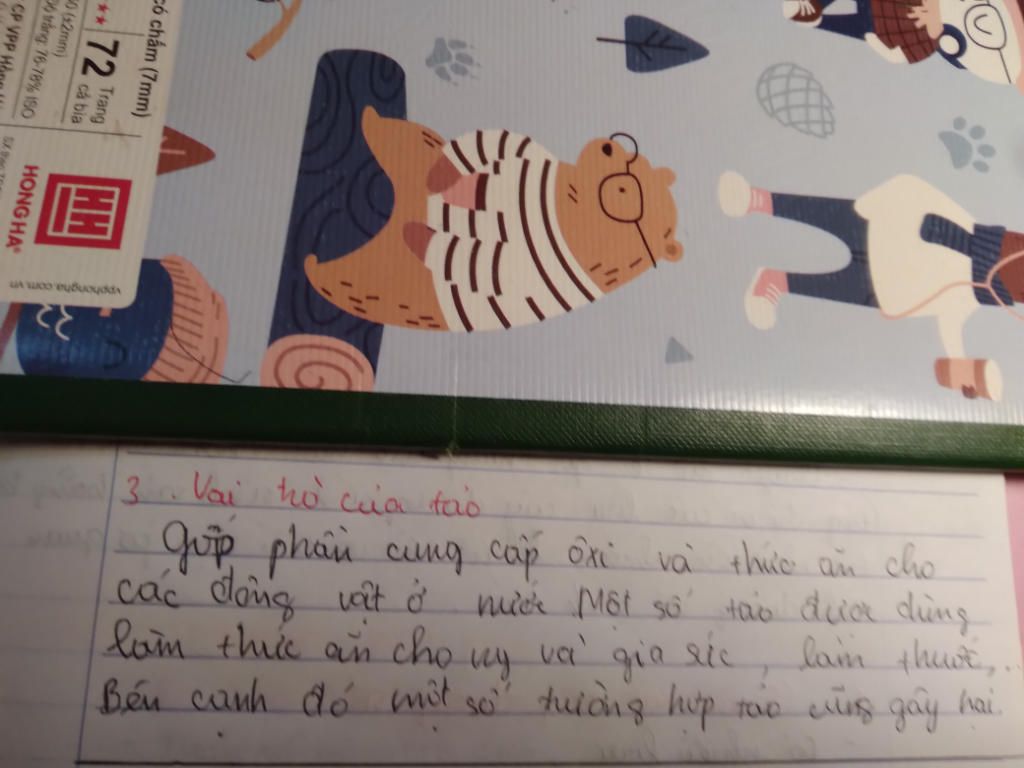 có chấm (7mm)
72 Trang
cả bìa
(±2mm)
trắng: 76-78% ISO
HH
HONG HA
vpphongha.com.vn
3. Vai trò của tảo
Góp phần cung cấp ôxi và thức ăn cho
các động vật ở nước Một số tảo được dùng
làm thức ăn cho uy và gia súc, làm thuốc,..
Bên cạnh đó một số trường hợp tảo cũng gây hại.